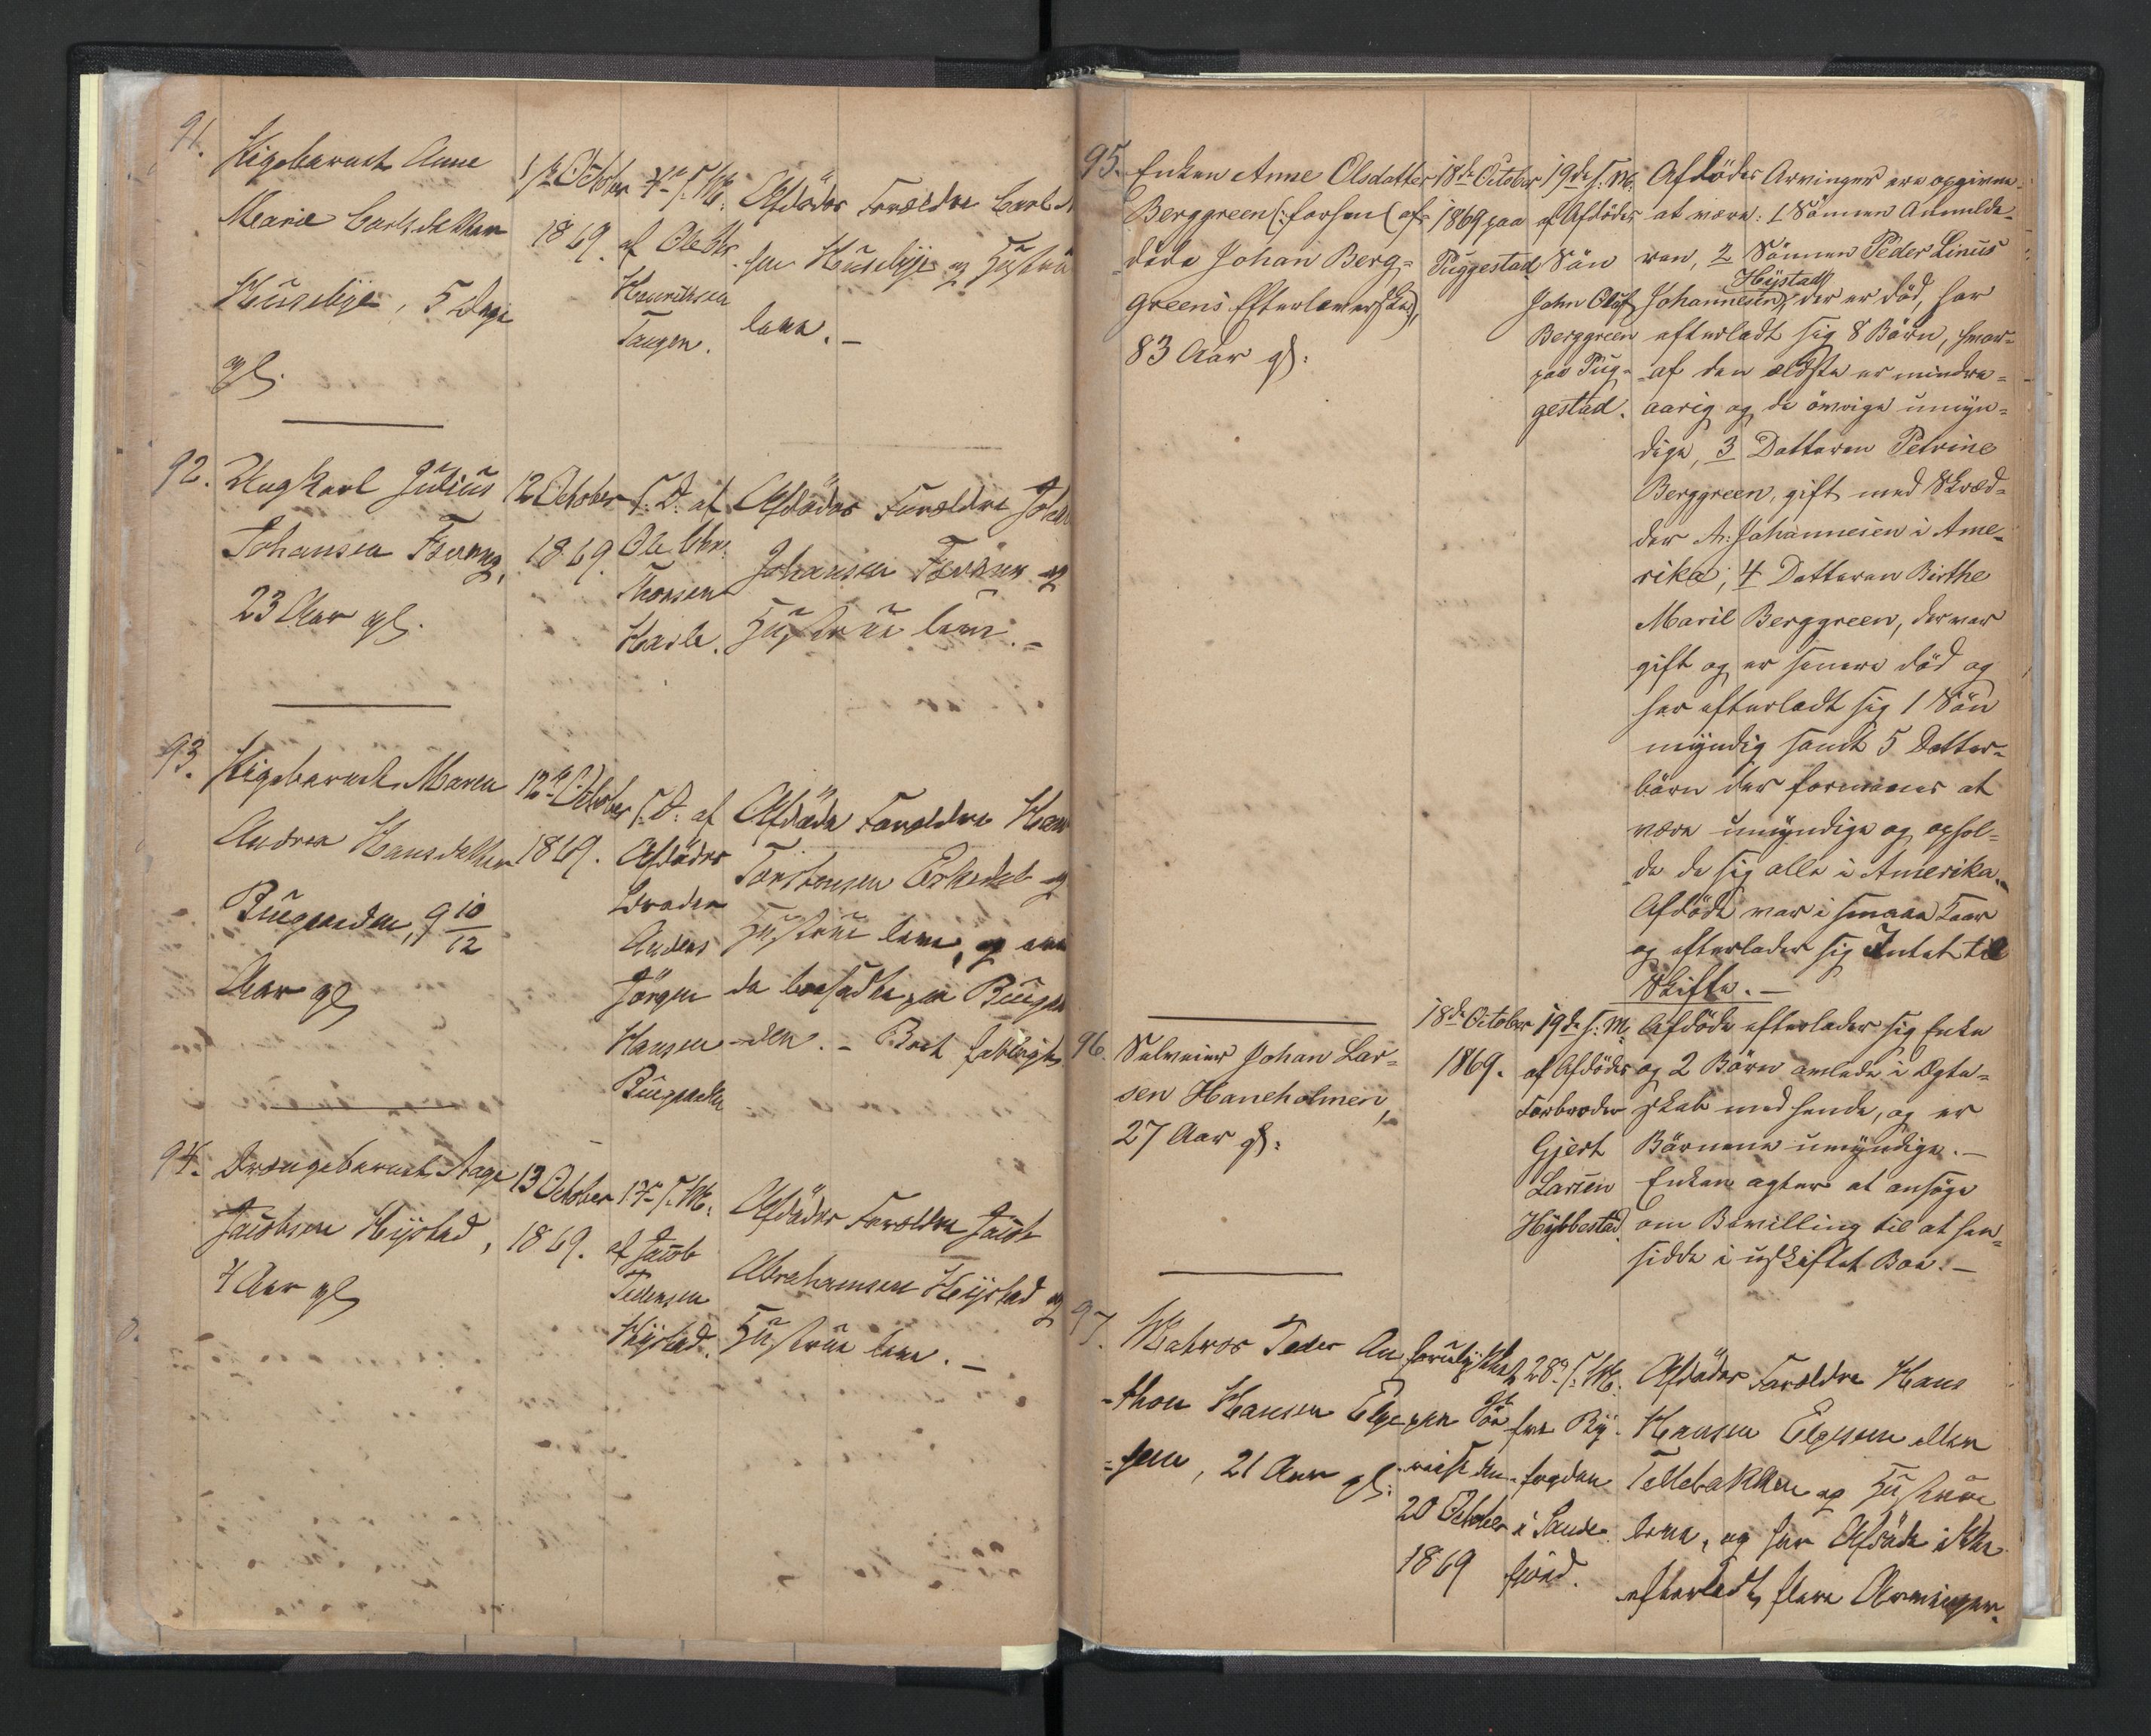 91.
Pigebarnet Anne
Marie Carlsdatter
Huseby, 5 Dage
gl.
1ste October
1869.
4de s. M.
af Ole Chr.
Henriksen
Tangen.
Afdødes Forældre Carl
sen Huseby og Hustru
leve. —
92. Ungkarl Julius
Johansen
23 Aar gl.
12 October
1869.
s. D. af
Ole Chr.
Thorsen
Hasle.
Afdødes Forældre Joha
Johansen og
Hustrue leve. —
93. Pigebarnet Maren
Andrea Hansdatter
Buegaarden, 9 10/12
Aar gl
12te October
1869.
s. D. af
Afdødes
Broder
Anders
Jørgen
Hansen
Buegaarden
Afdøde Forældre Han
Torstensen og
Hustrue leve, og ere
de bosatte paa Buegaar
-den. —
94. Drengebarnet Aage
Jacobsen Hystad,
4 Aar gl
13 October
1869.
17de s. M.
af Jacob
Pedersen
Hystad.
Afdødes Forældre Jacob
Abrahamsen Hystad og
Hustrue leve. —
95. Enken Anne Olsdatter
Berggreen (: forhen (af-
døde Johan Berg-
greens Efterleverske),
83 Aar gl:
18de October
1869 paa
Puggestad
19de s. M.
af Afdødes
Søn
John Oluf
Berggreen
paa Pug-
gestad.
Afdødes Arvinger ere opgivne
at være: 1 Sønnen Anmelde-
ren, 2 Sønnen Peder Linus
Hystad
Johannesen, der er død, har
efterladt sig 8 Børn, hvor-
af den ældste er mindre-
aarig og de øvrige umyn-
dige, 3 Datteren Petrine
Berggreen, gift med Skræd-
der A. Johannesen i Ame-
rika; 4 Datteren Birthe
Maril Berggreen, der var
gift og er senere død og
har efterladt sig 1 Søn
myndig samt 5 Datter-
børn der formenes at
være umyndige og ophol-
de de sig alle i Amerika. —
Afdøde var i smaae Kaar
og efterlader sig Intet til
Skifte. —
96. Selveier Johan Lar-
sen Haneholmen,
27 Aar gl:
18de October
1869.
19de s. M.
af Afdødes
Farbroder
Gjert
Larsen
Hybbestad.
Afdøde efterlader sig Enke
og 2 Børn avlede i Ægte-
skab med hende, og er
Børnene umyndige. —
Enken agter at ansøge
om Bevilling til at hen-
sidde i uskiftet Boe. —
97. Matros Peder An
-thon Hansen
-sen, 21 Aar gl:
forulykket
paa Søe
reise den
20 October
1869
28de s. M.
fra By-
fogden
i Sande-
fjord.
Afdødes Forældre Hans
Hansen eller
og Hustrue
leve, og har Afdøde ikke
efterladt flere Arvinger.